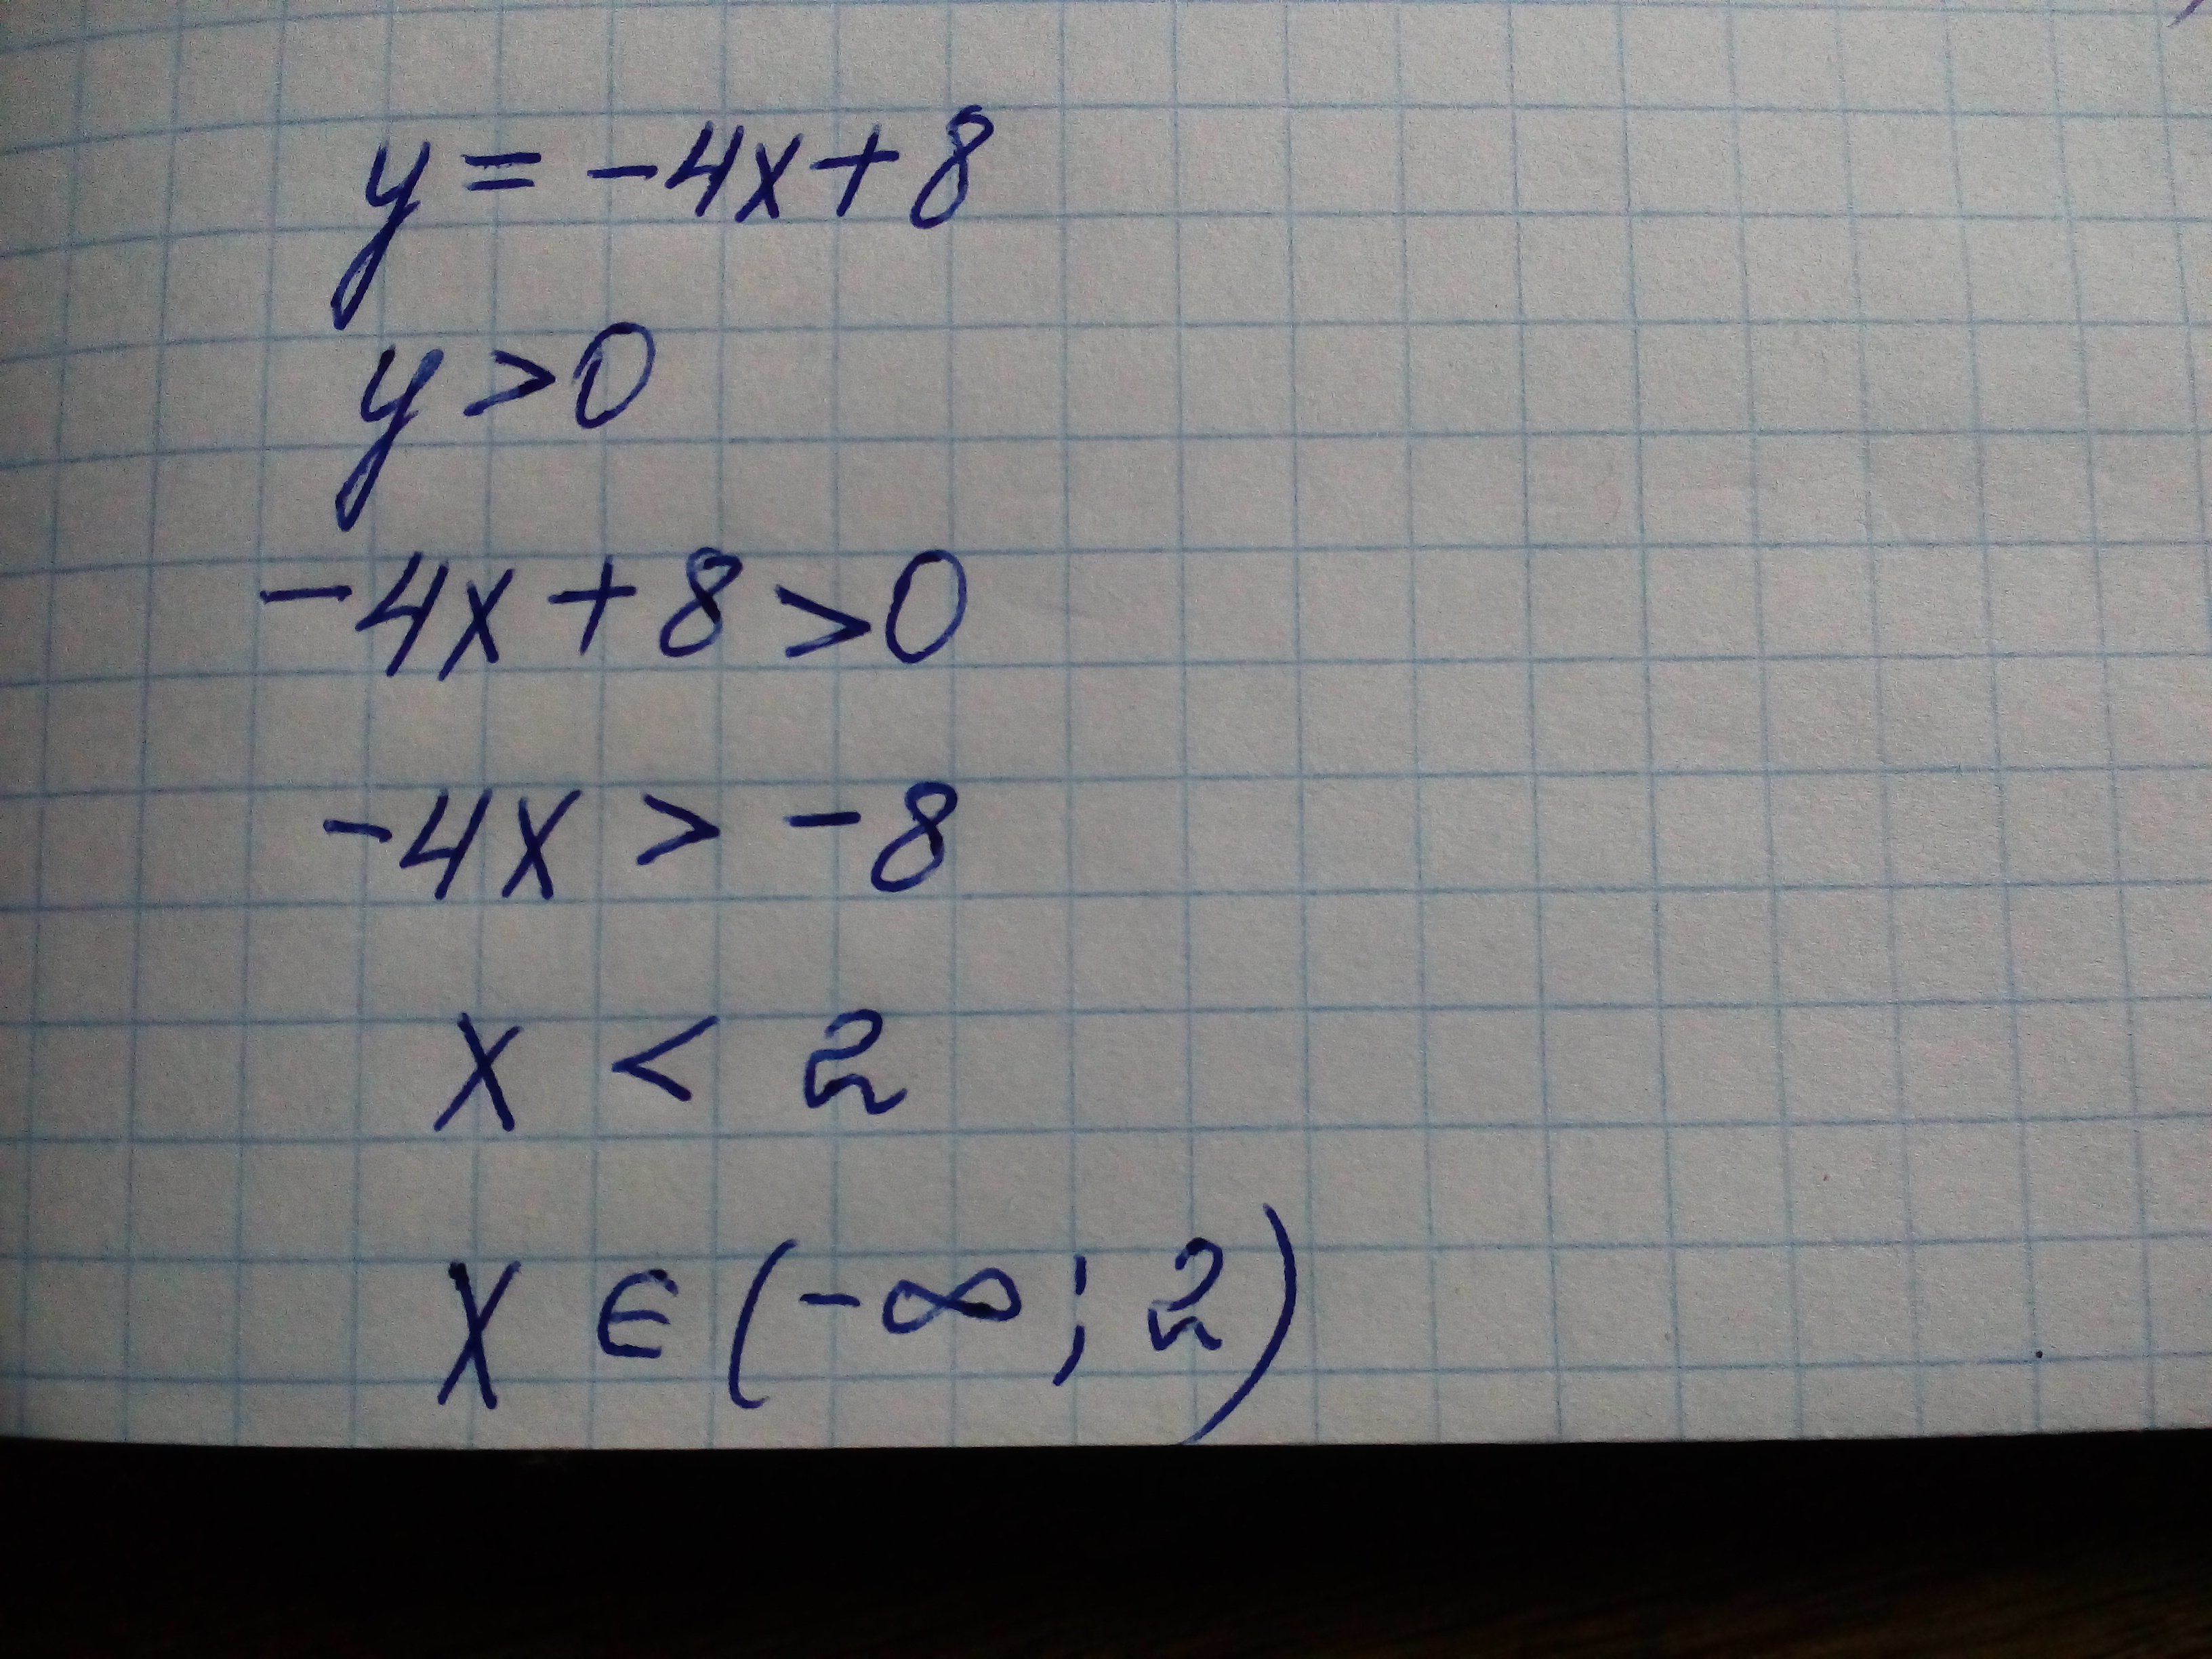 y = -4x + 8
y > 0
-4x + 8 > 0
-4x > -8
x < 2
x ∈ (-∞; 2)